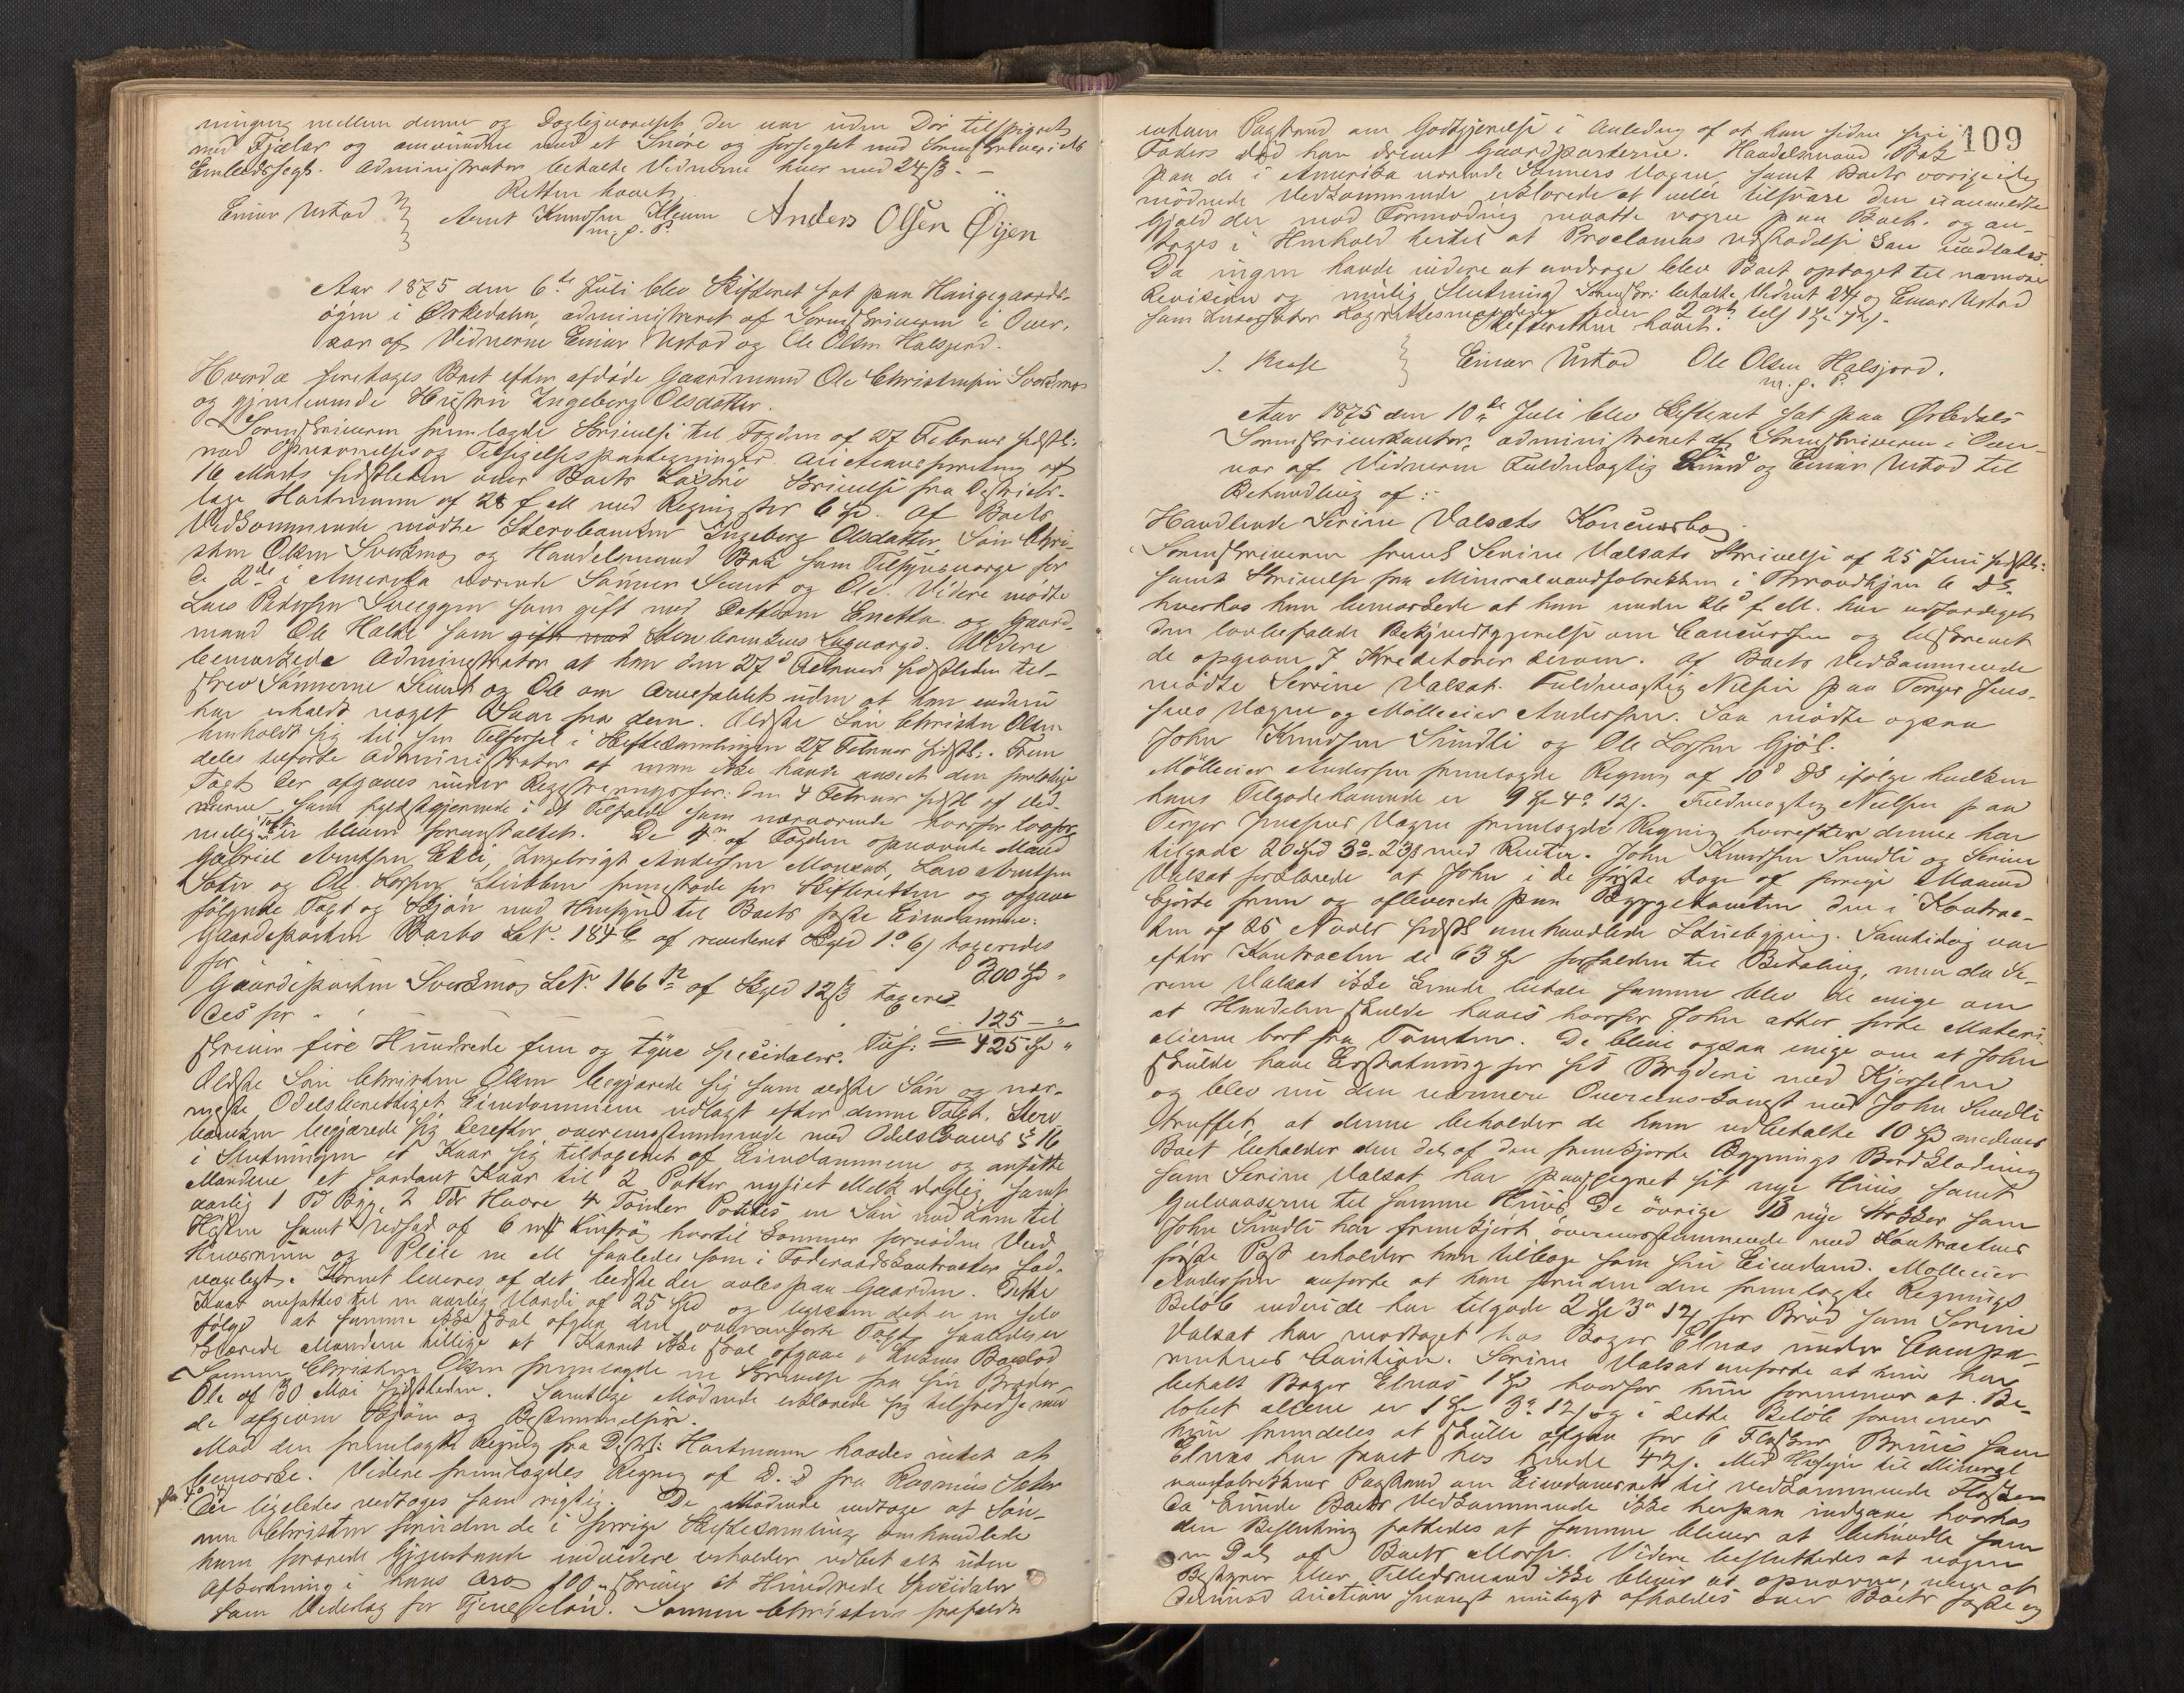 ningeng mellem denne og Dagligværelset der var uden Dör tilspigret
med Fjæler og omvunden med et Snöre og forseglet med Sorenskriveriets
Embedssegl. Administrator betalte Vidnerne hver med 24 ß. —
Retten hævet
Einar Ustad Arnt Knudsen Kleven Anders Olsen Øÿen
m. p. P.
Aar 1875 den 6te Juli blev Skifteret sat paa Haugegaards-
öÿen i Ørkedalen, administreret af Sorenskriveren i Over-
vær af Vidnerne Einar Ustad og Ole Olsen Halsjord.
Hvorda foretoges Boet efter afdöde Gaardmand Ole Christensen Svorkmo
og gjenlevende Hustru Ingeborg Olsdatter.
Sorenskriveren fremlagde Skrivelse til Fogden af 27 Februar sidstl:
med Opnævnelses og Tilsigelsespaategninger. Auctionsforretning af
16 Marts sidstleden over Boets Lösöre Skrivelse fra Distrikts-
læge Hartmann af 28 f. M. med Regning stor 6 Spd. Af Boets
Vedkommende mödte Stervboenken Ingeborg Olsdatter, Sön Chri-
sten Olsen Svorkmo og Handelsmand Bak som Tilsynsværge for
de 2de i Amerika værende Sönner Sivert og Ole. Videre mödte
Lars Pedersen Sveggen som gift med Datteren Enetta og Gaard-
mand Ole Holte som gift med Stervboenkens Laugværge. Videre
bemærkede Administrator at han den 27de Februar sidstleden til-
skrev Sönnerne Sivert og Ole om Arvefaldet uden at han endnu
har erholdt noget Svar fra dem. Ældste Sön Christen Olsen
henholdt sig til sin Tilförsel i Skiftesamlingen 27 Februar sidstl:. Frem-
deles tilförte Administrator at man ikke havde anseet den forelöbige
Taxt der afgaves under Registreringsfor: den 4 Februar sidstl af Vid-
nerne som fyldestgjørende i et Tilfælde som nærværende hvorfor lovfor-
melig Taxt er bleven foranstaltet. De 4re af Fogden opnævnte Mænd
Gabriel Arntsen Ekli, Ingebrigt Andersen Monset, Lars Arntsen
Solem og Ole Larsen fremstode for Skifteretten og afgave
fölgende Taxt og Skjön med Hensyn til Boets faste Eiendomme:
Gaardeparten Barbo LNr. 184 b af revideret Skyld 1 o 6 ß taxeredes
for 300 Spd "
Gaardeparten Svorkmo LNr. 166 a af Skyld 12 ß taxere-
des for 125 — "
Tils: = 425 Spd "
skriver fire Hundrede fem og tyve Speciedaler.
Ældste Sön Christen Olsen begjærede sig som ældste Sön og nær-
meste Odelsberettiget Eiendommene udlagt efter denne Taxt. Sterv-
boenken begjærede sig derefter overensstemmende med Odelslovens § 16
i Slutningen et Kaar sig tildageret af Eiendommene og ansatte
Mændene et saadant Kaar til 2 Potter nysiet Melk daglig, samt
aarlig 1 Td Byg, 2 Tdr Havre 4 Tönder Poteter en Sau med Lam til
Hösten samt Udsæd af 6 Linfrö, hvortil kommer fornöden Ved
Huusrum og Pleie m M saaledes som i Föderaadskontracter sæd-
vanligt. Kornet leveres af det bedste der avles paa Gaarden. Dette
Kaar ansattes til en aarlig Værdi af 25 Spd og ligesom det er en Selv
fölge at samme ikke skal afgaa den ovenanförte Taxt, saaledes er-
klærede Mændene tillige at Kaaret ikke skal afgaa i Enkens Boeslod
Sönnen Christen Olsen fremlagde en Skrivelse fra sin Broder
Ole af 30 Mai sidstleden. Samtlige Mödende erklærede sig tilfredse med
de afgivne Skjön og Bestemmelser.
Mod den fremlagte Regning fra Dstl: Hartmann haddes intet at
bemærke. Videre fremlagdes Regning af D. D. fra Rasmus Solem
Der ligeledes vedtoges som rigtig. De Mödende vedtoge at Sön-
nen Christen foruden de i forrige Skiftesamling omhandlede
ham forærede Gjenstande endvidere erholder udbetalt uden
Afkortning i hans Arv 100 skriver et Hundrede Speciedaler
som Vederlag for Tjenestelön. Sönnen Christen frafaldt
109
enhver Paastand om Godtgjörelse i Anledning af at han siden sin
Faders död har drevet Gaardparterne. Handelsmand Bak
paa de i Amerika værende Sönners Vegne, samt Boets övrige
mödende Vedkommende erklærede at ville tilsvare den uanmeldte
Gjæld der mod Formodning maatte være paa Boet. og an-
toges i Henhold hertil at Proclamas Udstædelse kan undlades.
Da ingen havde videre at andrage blev Boet optaget til nærmere
Revision og mulig Slutning. Sorenskri: betalte Vidnet 24 og Einar Ustad
som Lagrettesmændene hver 2 ort tils 1 Spd 72 ß.
Skifteretten hævet.
J. Einar Ustad Ole Olsen Halsjord.
m. p. P.
Aar 1875 den 10de Juli blev Skifteret sat paa Ørkedals
Sorenskriverkontor administreret af Sorenskriveren i Over-
vær af Vidnerne Fuldmægtig Lund og Einar Ustad til
Behandling af:
Handlende Serine Valsæts Koncursbo.
Sorenskriveren freml Serine Valsæts Skrivelse af 25 Juni sidstl:
samt Skrivelse fra Mineralvandfabrikken i Throndhjem 6 ds.
hvorhos han bemærkede at han under 26de f. M. har udfærdiget
den lovbefalede Bekjendtgjørelse om Concursen og tilskrevet
de opgivne 7 Kreditorer derom. Af Boets Vedkommende
mödte Serine Valsæt. Fuldmægtig Nielsen paa Torger Jens-
sens Vegne og Mölleeier Andersen. Saa mödte ogsaa
John Knudsen Sundli og Ole Larsen Gjöl.
Mölleeier Andersen fremlagde Regning af 10de ds ifölge hvilken
hans Tilgodehavende er 9 Spd 4 o 12 ß. Fuldmægtig Nielsen paa
Torger Jenssens Vegne fremlagde Regning hvorefter denne har
tilgode 20 Spd 3 o 23 ß med Renter. John Knudsen Sundli og Serine
Valsæt forklarede at John i de förste Dage af forrige Maaned
kjörte frem og afleverede paa Byggetomten den i Kontrac-
ten af 25 Novbr sidstl omhandlede Stuebygning. Samtidig var
efter Kontracten de 63 Spd forfalden til Betaling, men da Se-
rine Valsæt ikke kunde betale samme blev de enige om
at Handelen skulde hæves hvorfor John atter förte Materi-
alierne bort fra Tomten. De bleve ogsaa enige om at John
skulde have Erstatning for sit Bryderi med Kjörselen
og blev nu den nærmere Overenskomst med John Sundli
truffet, at denne beholder de ham udbetalte 10 Spd medens
Boet beholder den del af den fremkjörte Bygnings Bordklædning
som Serine Valsæt har paaspigret sit nye Huus samt
Gulvaaserne til samme Huus De övrige 13 nye Stokker som
John Sundli har fremkjört overensstemmende med Kontractens
förste Post erholder han tilbage som sin Eiendom. Mölleeier
Andersen anförte at han foruden den fremlagte Regnings
Belöb endvide har tilgode 2 Spd 3 o 12 ß for Bröd som Serine
Valsæt har modtaget hos Bager Elnæs under Compa-
rentens Caution. Serine Valsæt anförte at hun har
betalt Bager Elnæs 1 Spd hvorfor hun formener at Be-
löbet alene er 1 Spd 3 o 12 ß og i dette Belöb formener
hun fremdeles at skulle afgaa for 6 Flasker Bruus som
Elnæs har faaet hos hende 42 ß. Med Hensyn til Mineral
vandfabrikkens Paastand om Eiendomsret til vedkommende Flasker
da kunde Boets Vedkommende ikke herpaa indgaae hvorhos
den Beslutning fattedes at samme bliver at behandle som
en Del af Boets Masse. Videre besluttedes at nogen
Bestyrer eller Tillidsmand ikke bliver at opnævne, uage at
derimod Auction snarest muligt afholdes over Boets faste og